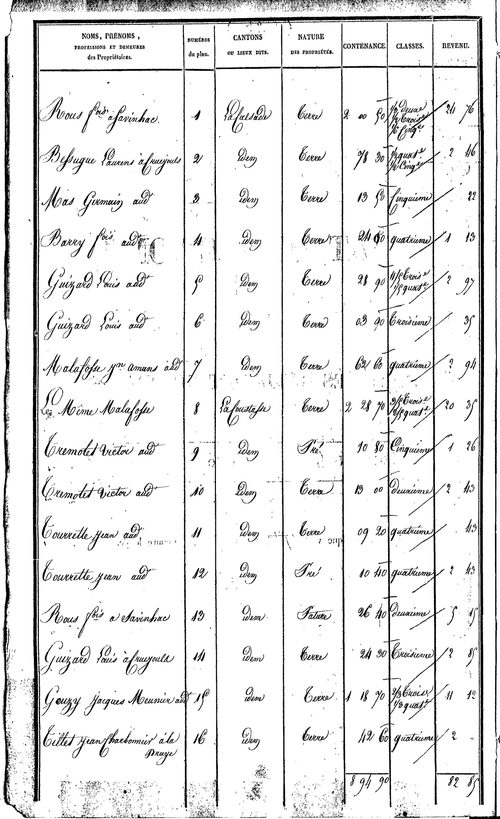 NOMS, PRÉNOMS, PROFESSIONS ET DEMEURES des Propriétaires. NUMÉROS du plan. CANTONS OU LIEUX DITS. NATURE DES PROPRIÉTÉS. CONTENANCE. CLASSES. REVENU.
Rous fois à Savinhac 1 La Calsade Terre 2 00 50 24 76
Bessugue Laurens à Cruejouls 2 idem Terre 78 30 2 46
Mas Germain aud 3 idem Terre 13 53 Cinquieme 22
Barry fois aud 4 idem Terre quatrieme 1 13
Guizard Louis aud 5 idem Terre 28 90 2 97
Guizard Louis aud 6 idem Terre 03 90 Troisieme 35
Malafosse jn amans aud 7 idem Terre 62 60 quatrieme 2 94
Le Même Malafosse 8 La Coustasse Terre 2 28 70 20 35
Tremolet Victor aud 9 idem Pré 10 80 Cinquieme 1 26
Tremolet Victor aud 10 idem Terre 13 00 deuxieme 2 43
Tourrette jean aud 11 idem Terre 09 20 quatrième 43
Tourrette jean aud 12 idem Pré 10 40 quatrieme 2 43
Rous fois a Savinhac 13 idem Pature 26 40 deuxieme 5 15
Guizard Louis à Cruejouls 14 idem Terre 24 30 Troisieme 2 85
Gouzy Jacques Meunier aud 15 idem Terre 1 18 70 11 12
Tillet jean Charbonnier à la 16 idem Terre 42 60 quatrieme 2
8 94 90 82 85